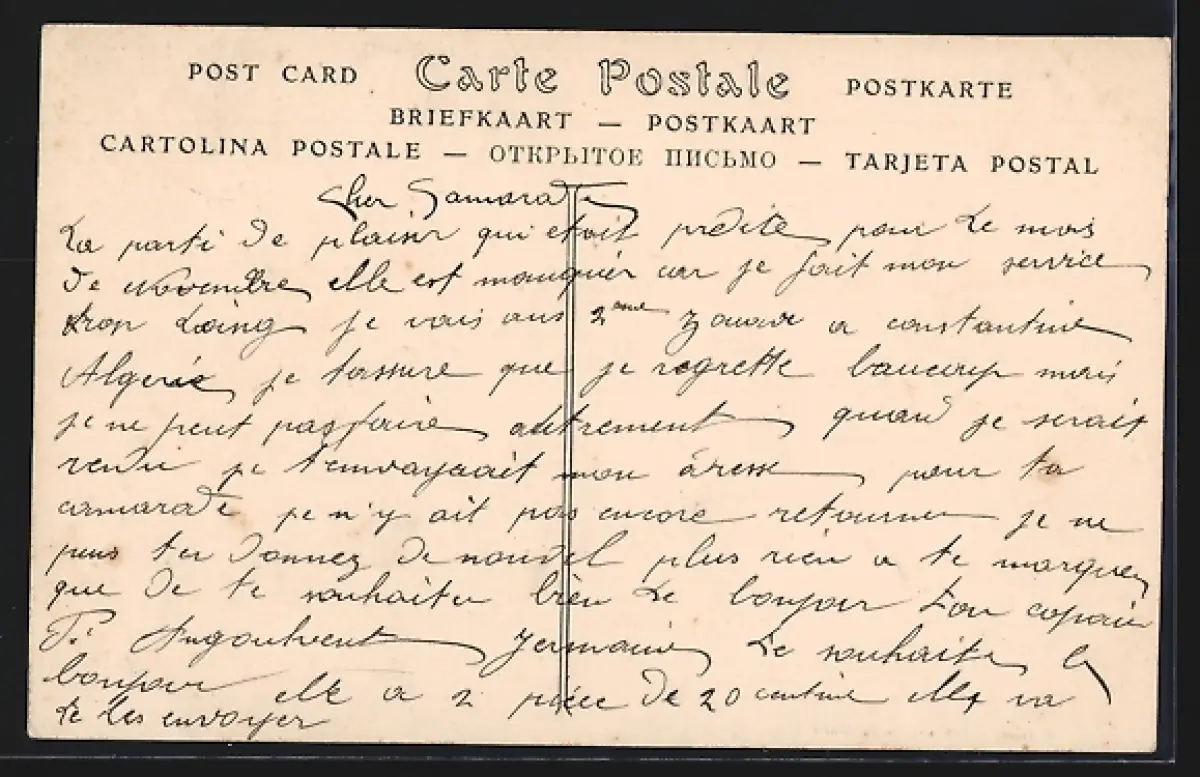 POST CARD Carte Postale POSTKARTE
BRIEFKAART — POSTKAART
CARTOLINA POSTALE — ОТКРЫТОЕ ПИСЬМО — TARJETA POSTAL
Cher Camarade
La parti de plaisir qui etait prédite pour le mois
de Novembre elle est manquér car je fait mon service
trop loing je vais aus 2eme zouave a constantine
Algerie je tassure que je regrette baucoup mais
je ne peut pas faire autrement quand je serait
rendu je tenvoyerait mon adresse pour ta
camarade je n'y ait pas encore retourner je ne
peus ten donnez de nouvel plus rien a te marquer
que de te souhaiter bien le bonjour ton copain
Angoulvent Germaine te souhaite le
bonjour elle a 2 pièce de 20 centime elle va
te les envoyer